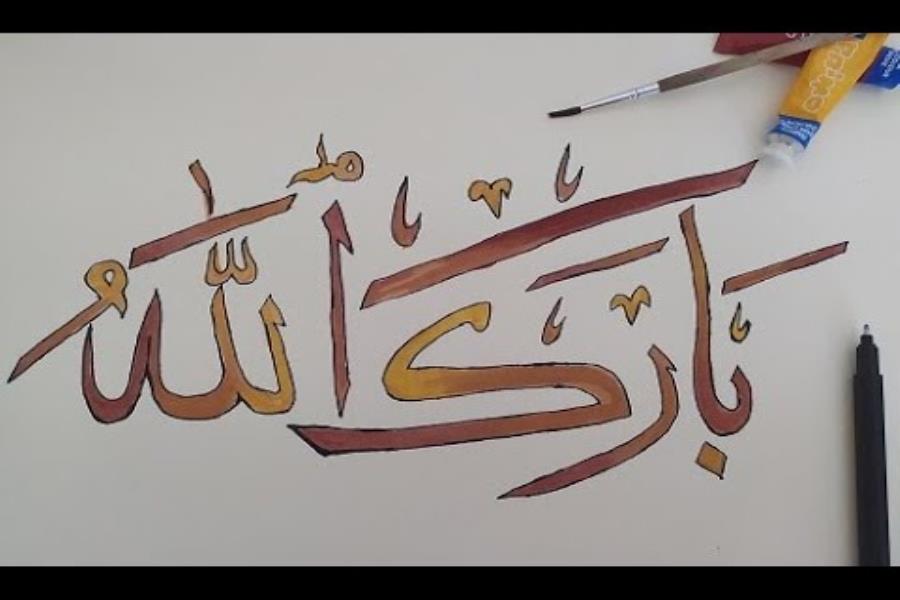 بَارَكَ ٱللّٰهُ